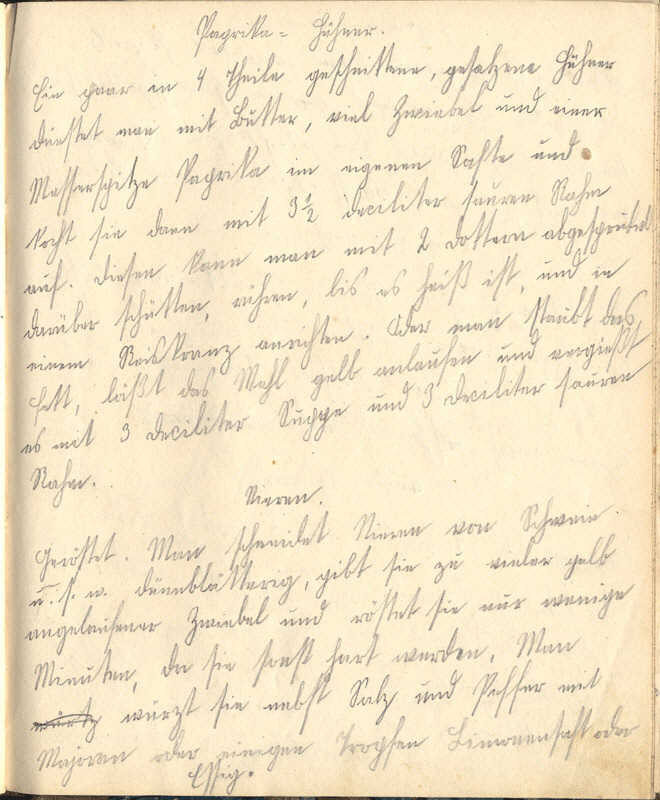 Paprika- Hühner.
Ein paar in 4 Theile geschnittene, gesalzene Hühner
dünstet man mit Butter, viel Zwiebel und einer
Messerspitze Paprika im eigenen Safte und
kocht sie dann mit 3 1/2 deciliter sauren Rahm
auf. Diesen kann man mit 2 Dottern abgesprudelt
darüber schütten, rühren, bis es heiß ist, und in
einem Reiskranz anrichten. Oder man staubt das
Fett, läßt das Mehl gelb anlaufen und vergießt
es mit 3 Deciliter Suppe und 3 Deciliter sauren
Rahm.
Nieren.
Geröstet. Man schneidet Nieren von Schwein
u. s. w. dünnblätterig, gibt sie zu vieler gelb
angelaufener Zwiebel und röstet sie nur wenige
Minuten, da sie sonst hart werden. Man
würzt sie nebst Salz und Pfeffer mit
Majoran oder einigen Tropfen Limonensaft oder
Essig.